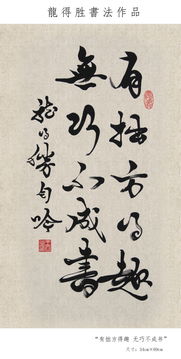 龍得胜書法作品
有拙方得趣
無巧不成書
龍得勝自吟
"有拙方得趣 无巧不成书"
尺寸：34cm×69cm